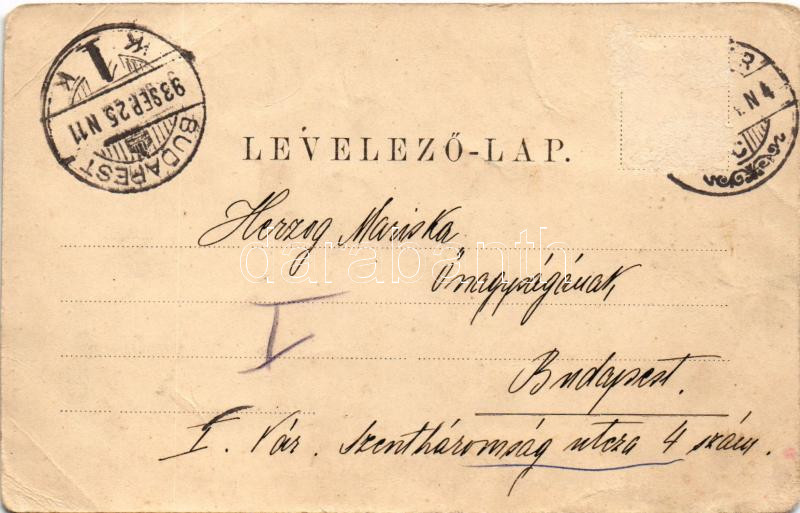 BUDAPEST
93 SEP. 25. N 11
1
K K
R
N 4
LEVELEZŐ-LAP.
Herzog Mariska
Önagyságának
darabanth
I
Budapest.
I. Vár. Szentháromság utcza 4 szám.